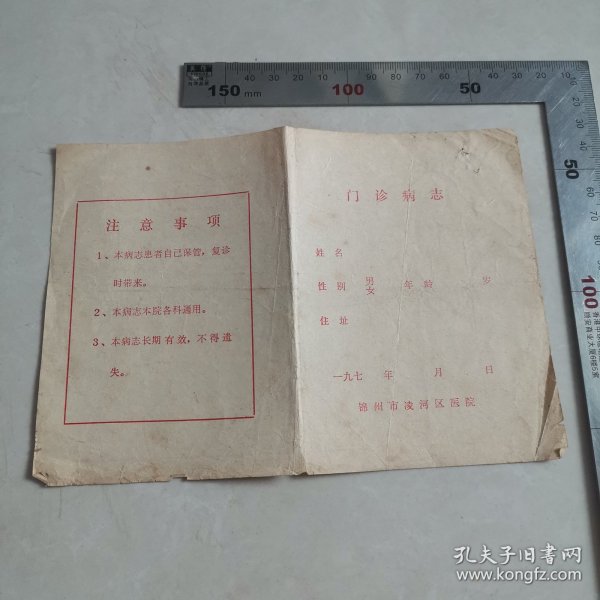 150 mm
100
50
40 30 20 10
40 30 20 10
40 30 20 10
10
20
30
40
50
60
70
80
90
100
注意事项
1、本病志患者自己保管，复诊
时带来。
2、本病志本院各科通用。
3、本病志长期有效，不得遗
失。
门诊病志
姓名
性别 男 年龄 岁
女
住址
一九七 年 月 日
锦州市凌河区医院
孔夫子旧书网
www.kongfz.com